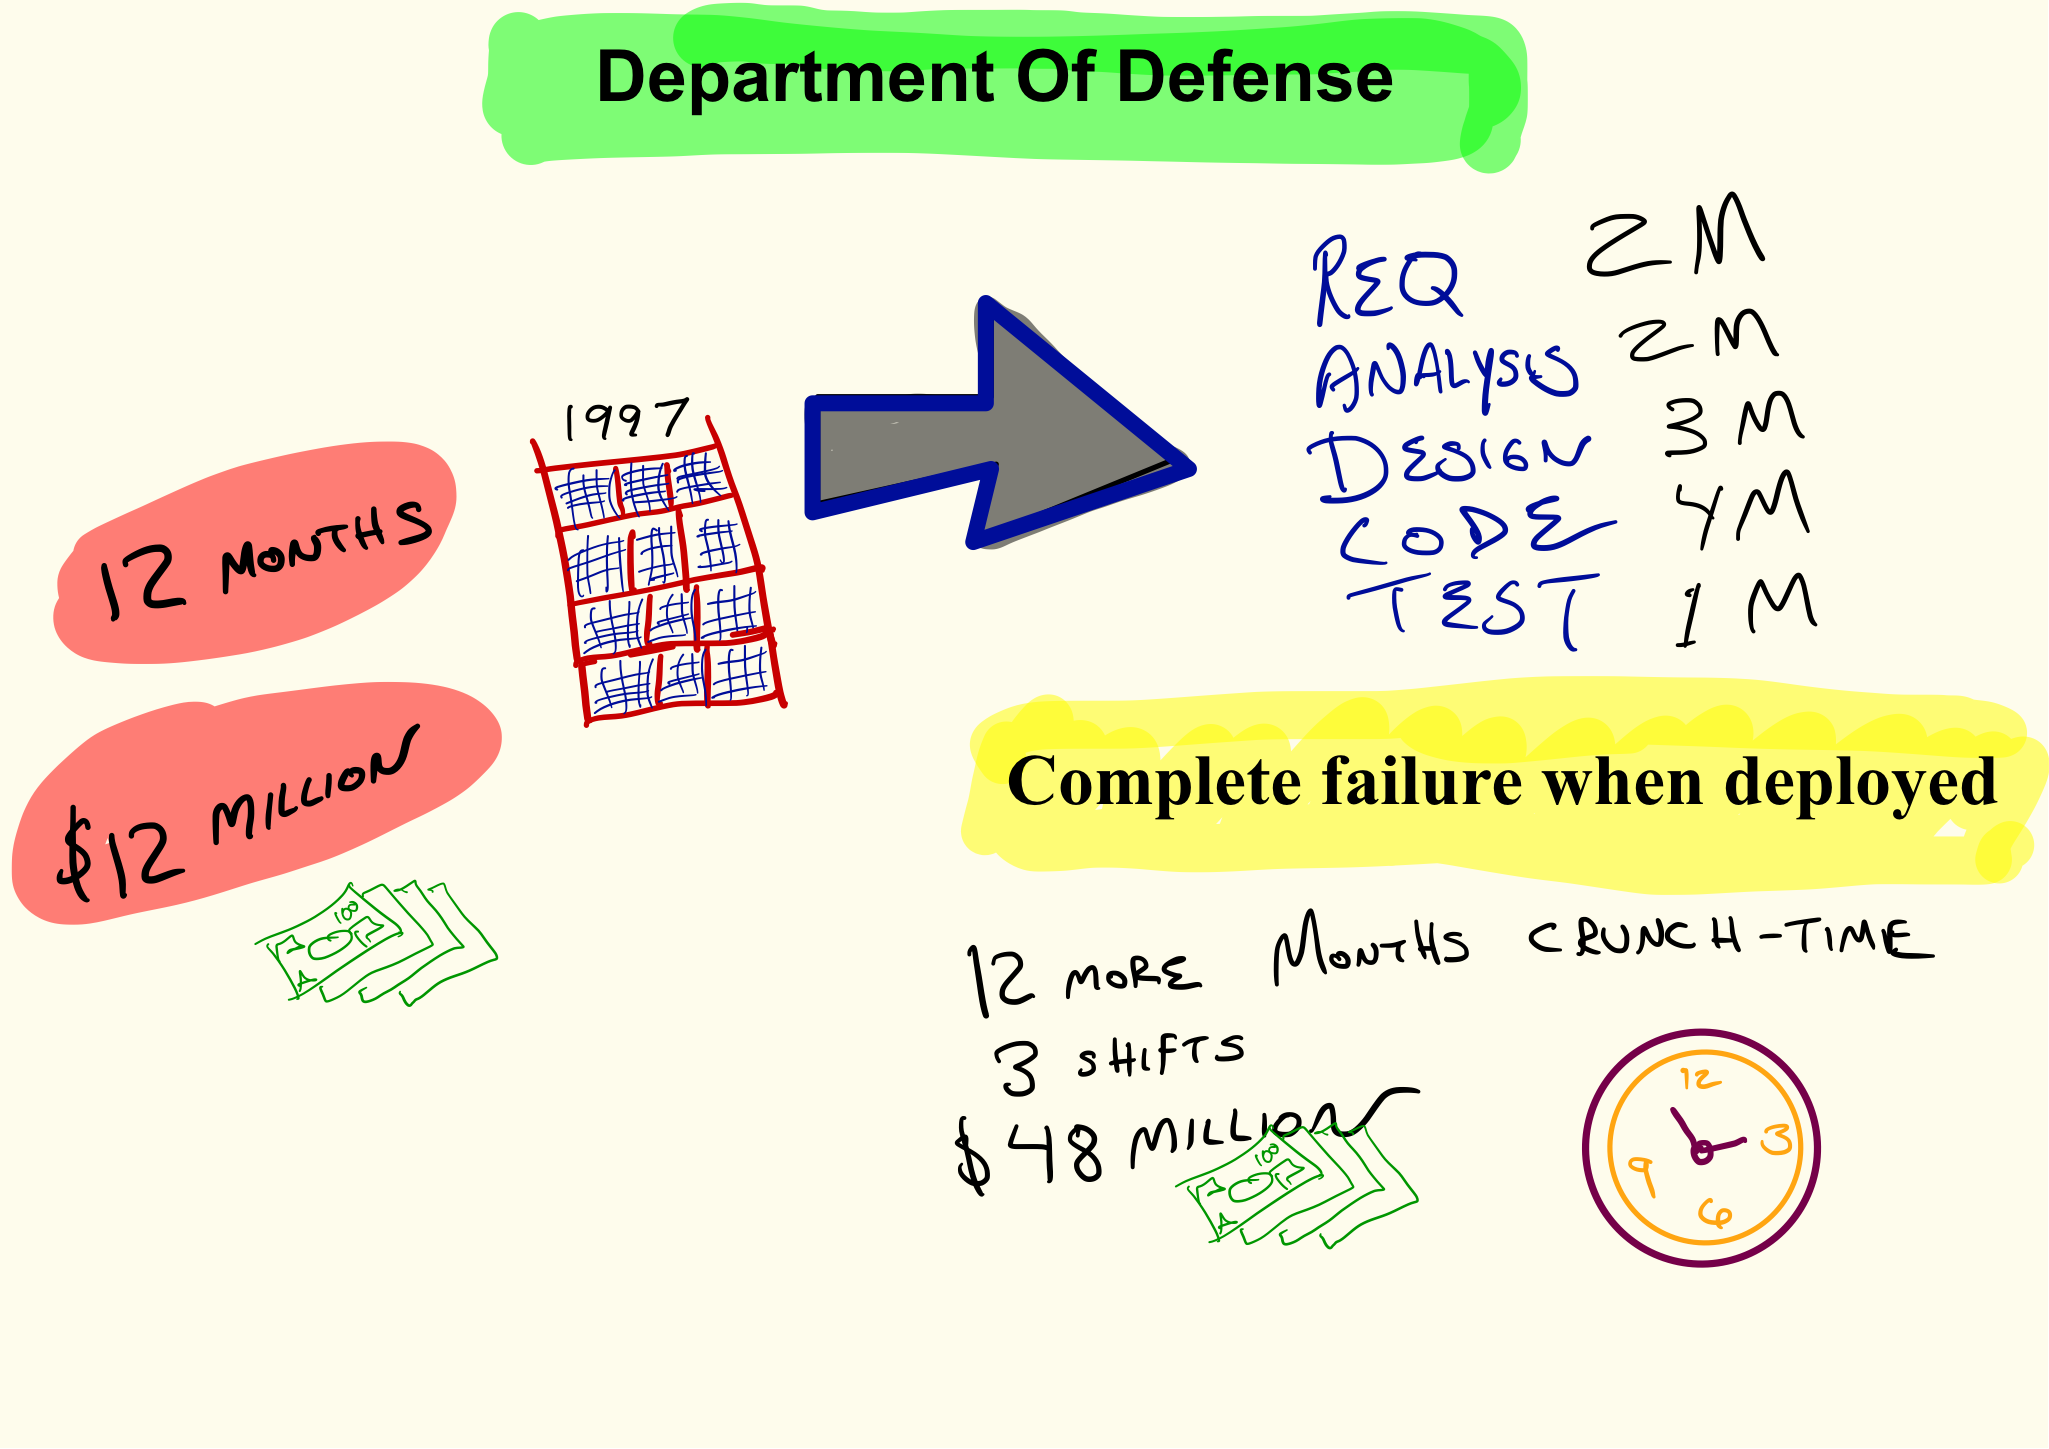 Department Of Defense
12 MONTHS
$12 MILLION
100
1997
REQ 2M
ANALYSIS 2M
DESIGN 3M
CODE 4M
TEST 1M
Complete failure when deployed
12 MORE MONTHS CRUNCH-TIME
3 SHIFTS
$48 MILLION
100
12
3
6
9